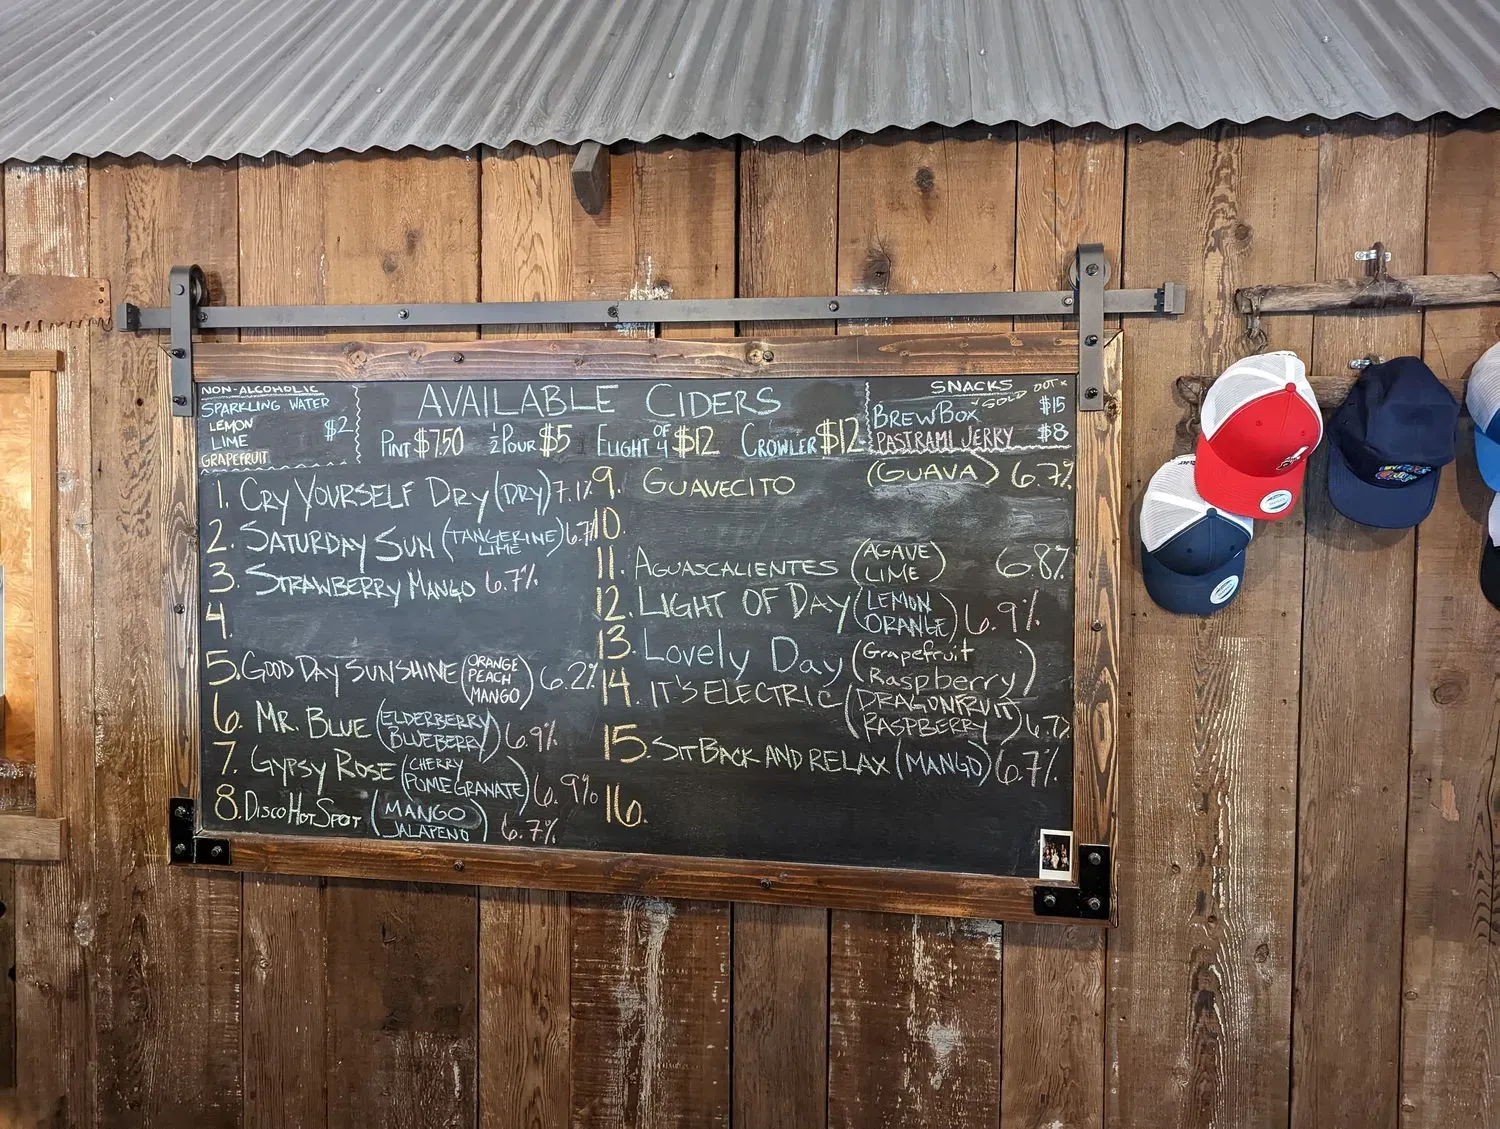 NON-ALCOHOLIC
SPARKLING WATER
LEMON
LIME
$2
GRAPEFRUIT
AVAILABLE CIDERS
PINT $7.50 ½ POUR $5 FLIGHT OF 4 $12 CROWLER $12
SNACKS
BREWBOX SOLD OUT $15
PASTRAMI JERKY $8
1. CRY YOURSELF DRY (DRY) 7.1%
2. SATURDAY SUN (TANGERINE LIME) 6.7%
3. STRAWBERRY MANGO 6.7%
4.
5. GOOD DAY SUNSHINE (ORANGE PEACH MANGO) 6.2%
6. MR. BLUE (ELDERBERRY BLUEBERRY) 6.9%
7. GYPSY ROSE (CHERRY POMEGRANATE) 6.9%
8. DISCO HOT SPOT (MANGO JALAPENO) 6.7%
9. GUAVECITO (GUAVA) 6.7%
10.
11. AGUASCALIENTES (AGAVE LIME) 6.8%
12. LIGHT OF DAY (LEMON ORANGE) 6.9%
13. Lovely Day (Grapefruit Raspberry)
14. IT'S ELECTRIC (DRAGONFRUIT RASPBERRY) 6.7%
15. SIT BACK AND RELAX (MANGO) 6.7%
16.